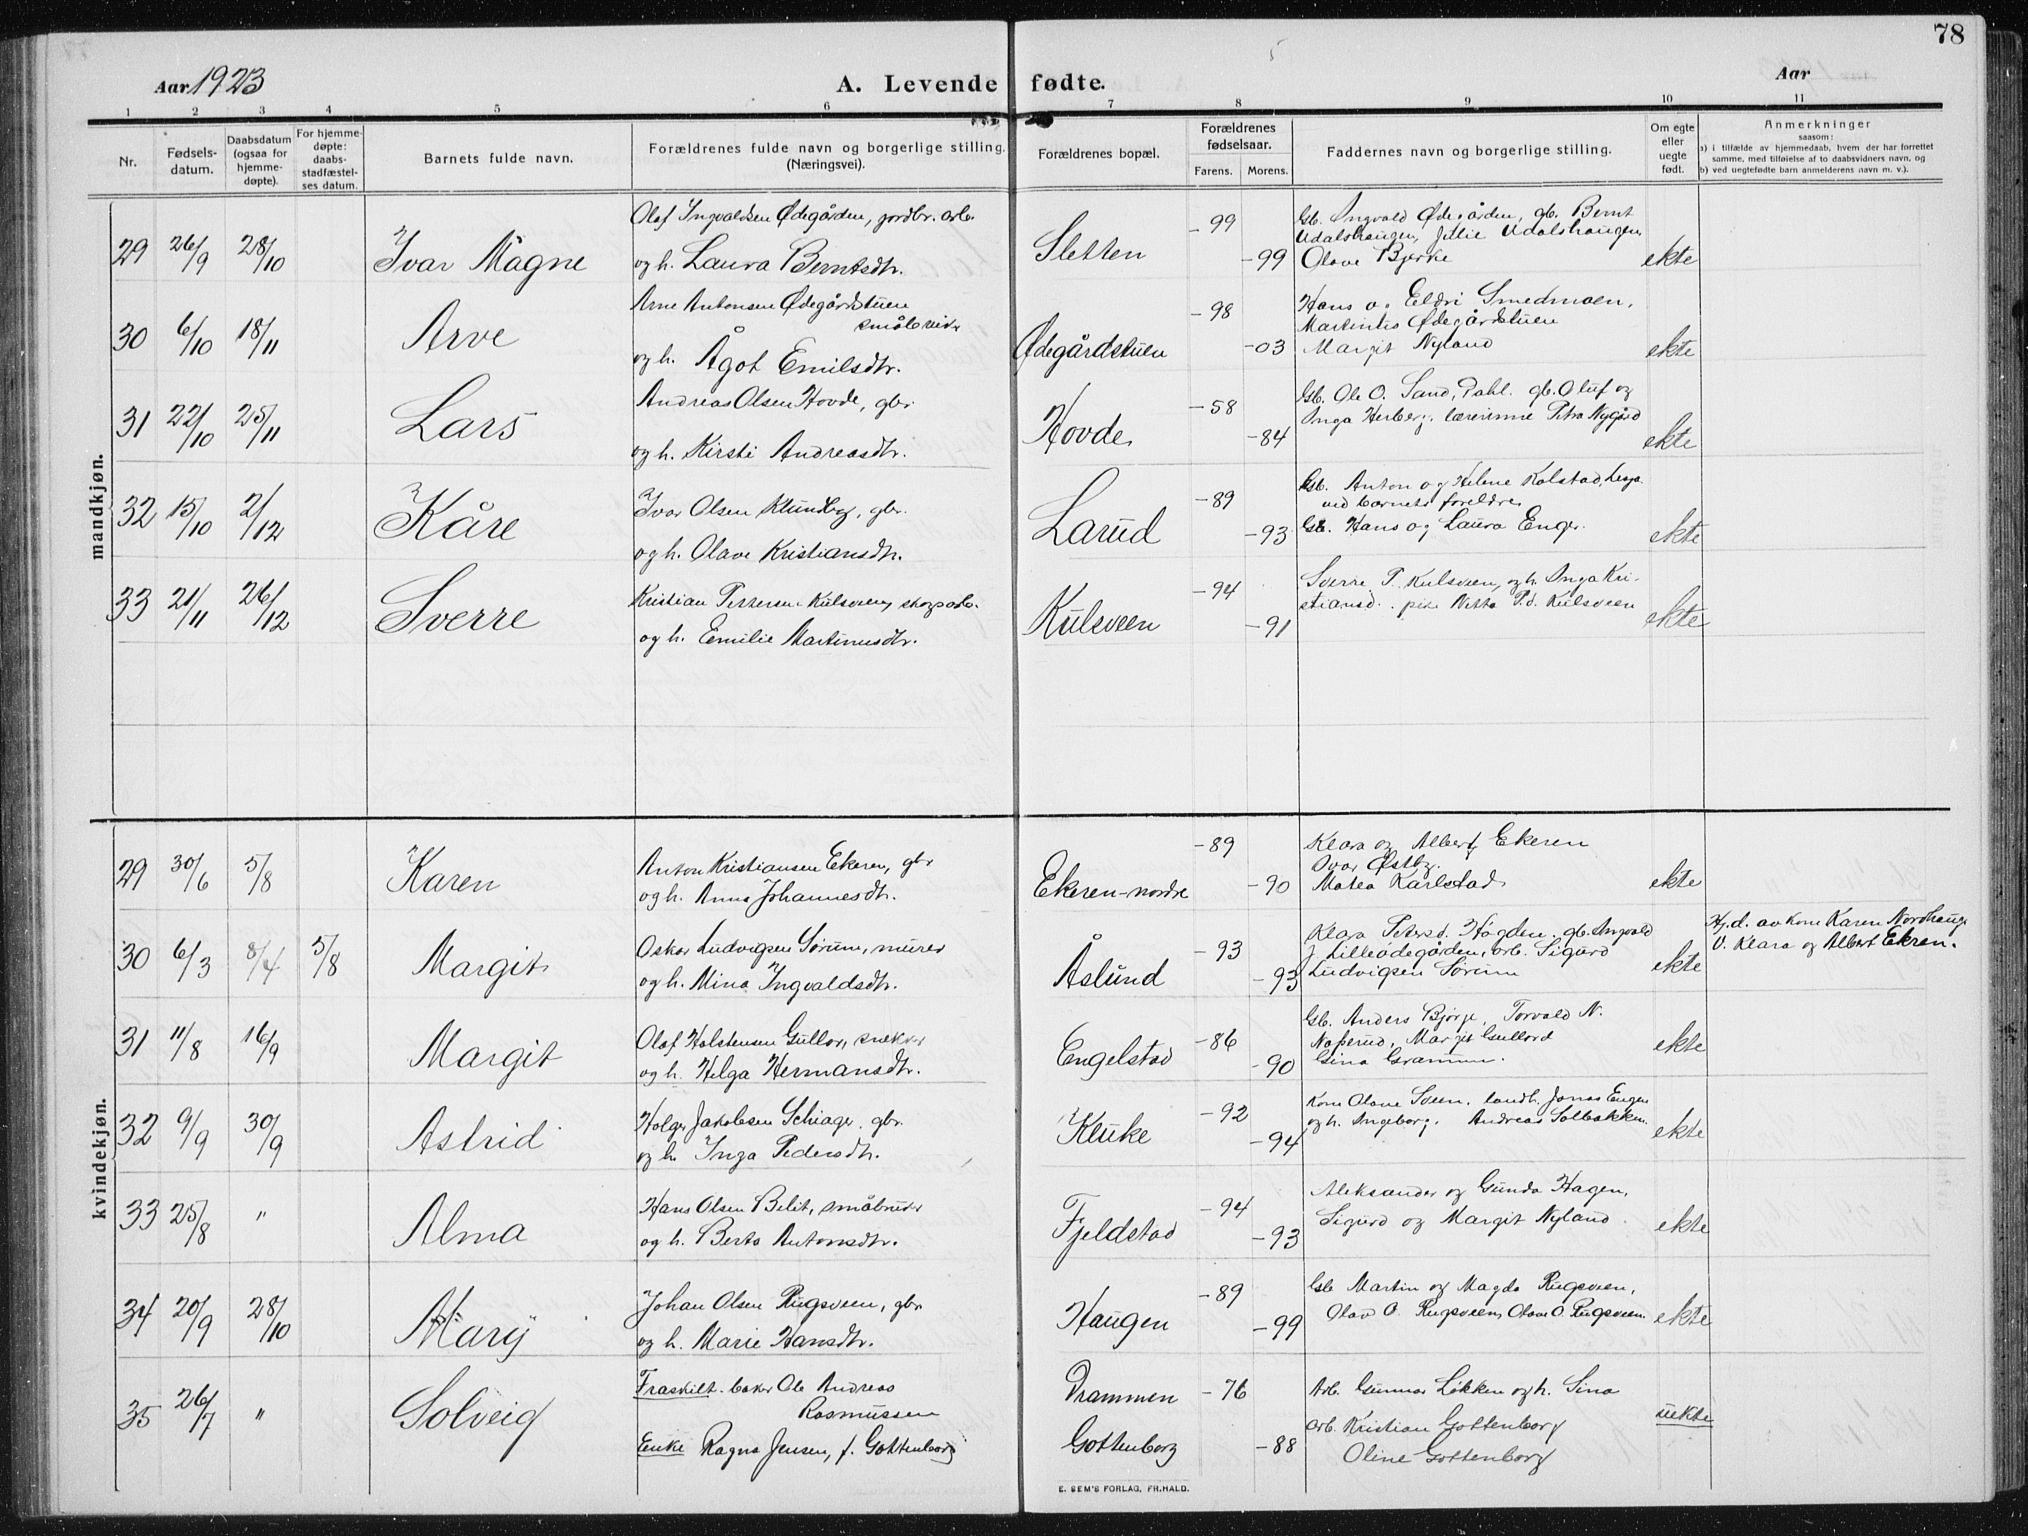 78
Aar 1923
A. Levende fødte.
Aar
1 2 3 4 5 6 7 8 9 10 11
Nr.
Fødsels-
datum.
Daabsdatum
(ogsaa for
hjemme-
døpte).
For hjemme-
døpte:
daabs-
stadfæstel-
ses datum.
Barnets fulde navn.
Forældrenes fulde navn og borgerlige stilling.
(Næringsvei).
Forældrenes bopæl.
Forældrenes
fødselsaar.
Farens. Morens.
Faddernes navn og borgerlige stilling.
Om egte
eller
uegte
født.
Anmerkninger
saasom:
a) i tilfælde av hjemmedaab, hvem der har forrettet
samme, med tilføielse af to daabsvidners navn, og
b) ved uegtefødte barn anmelderens navn m. v.).
mandkjøn.
29 26/9 28/10 Ivar Magne
Olaf Ingvaldsen Ødegården, jordbr. arb.
og h. Laura Berntsdtr.
Sletten -99 -99
Gb. Ingvald Ødegården, gb. Bernt
Udalshaugen, Jillie Udalshaugen,
Olave Bjerke
ekte
30 6/10 18/11 Arve
Arne Antonsen Ødegårdstuen
småbruker
og h. Ågot Emilsdtr.
Ødegårdstuen -98 -03
Hans o. Eldri Smedmoen,
Martinius Ødegårdstuen
Margit Nyland
ekte
31 22/10 25/11 Lars
Andreas Olsen Hovde, gbr
og h. Kirsti Andreasdtr.
Hovde -58 -84
Gb. Ole O. Sand, gb. Oluf og
Inga Herberg, lærerinne Petra Nygård
ekte
32 15/10 2/12 Kåre
Ivar Olsen Klundby, gbr.
og h. Olave Kristiansdtr.
Larud -89 -93
Gb. Anton og Helene Kolstad,
ved barnets foreldre
Gb. Hans og Laura Enger.
ekte
33 21/11 26/12 Sverre
Kristian Pettersen Kulsveen, skogsarb.
og h. Emilie Martinusdtr.
Kulsveen -94 -91
Sverre P. Kulsveen, og h. Inga Kri-
stiansd. pike Netta P.d. Kulsveen
ekte
kvindekjøn.
29 30/6 5/8 Karen
Anton Kristiansen Ekeren, gbr
og h. Anna Johannesdtr.
Ekeren-nordre -89 -90
Klara og Albert Ekeren
Ivar Østby.
Matea Karlstad
ekte
30 6/3 8/4 5/8 Margit
Oskar Ludvigsen Sørum, murer
og h. Mina Ingvaldsdtr.
Åslund -93 -93
Klara Petersd. Høgden, gb. Ingvald
J. Lilleødegården, arb. Sigurd
Ludvigsen Sørum
ekte
Hj.d. av kone Karen Nordhaug
V. Klara og Albert Ekren.
31 11/8 16/9 Margit
Olaf Holstensen Gullor, snekker
og h. Helga Hermansdtr.
Engelstad -86 -90
Gb. Anders Bjørge, Torvald N.
Naperud, Margit Gullord
Gina Gramm.
ekte
32 9/9 30/9 Astrid
Holger Jakobsen Schiager, gbr.
og h. Inga Pedersdtr.
Kluke -92 -94
Kone Olave Sveen, landh. Jonas Engen
og h. Ingeborg. Andreas Solbakken
ekte
33 25/8 " Alma
Hans Olsen Belit, småbruker
og h. Berta Antonsdtr.
Fjeldstad -94 -93
Aleksander og Gunda Hagen,
Sigurd og Margit Nyland.
ekte
34 20/9 28/10 Mary
Johan Olsen Rugsveen, gbr
og h. Marie Hansdtr.
Haugen -89 -99
Gb Martin og Magda Rugsveen,
Olav O. Rugsveen, Olave O. Rugsveen.
ekte
35 26/7 " Solveig
Fraskilt baker Ole Andreas
Rasmussen
Enke Ragna Jensen, f. Gottenborg
Drammen -76
Gottenborg -88
Arb. Gunnar Løkken og h. Sina
arb. Kristian Gottenborg
Oline Gottenborg
uekte
E. SEM'S FORLAG, FR.HALD.